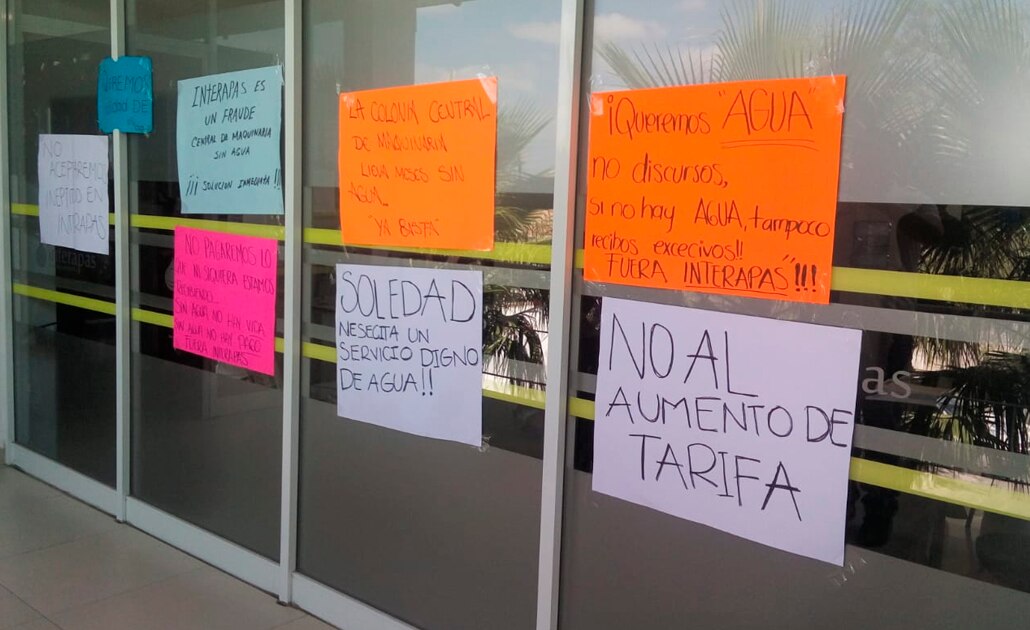 NO
ACEPTAREMOS
INEPTITUD EN
INTRAPAS
INTERAPAS ES
UN FRAUDE
CENTRAL DA MAQUINARIA
SIN AGUA
¡¡¡ SOLUCION INMEDIATA !!!
NO PAGAREMOS LO
QUE NI SIQUIERA ESTAMOS
RECIBIENDO...
SIN AGUA NO HAY VIDA
SIN AGUA NO HAY PAGO
FUERA INTERAPAS
LA COLONIA CENTRAL
DE MAQUINARIA
MESES SIN
AGUA
"YA BASTA"
SOLEDAD
NESECITA UN
SERVICIO DIGNO
DE AGUA!!
¡Queremos "AGUA"
no discursos,
si no hay AGUA, tampoco
recibos excecivos!!
FUERA INTERAPAS"!!!
NO AL
AUMENTO DE
TARIFA
as